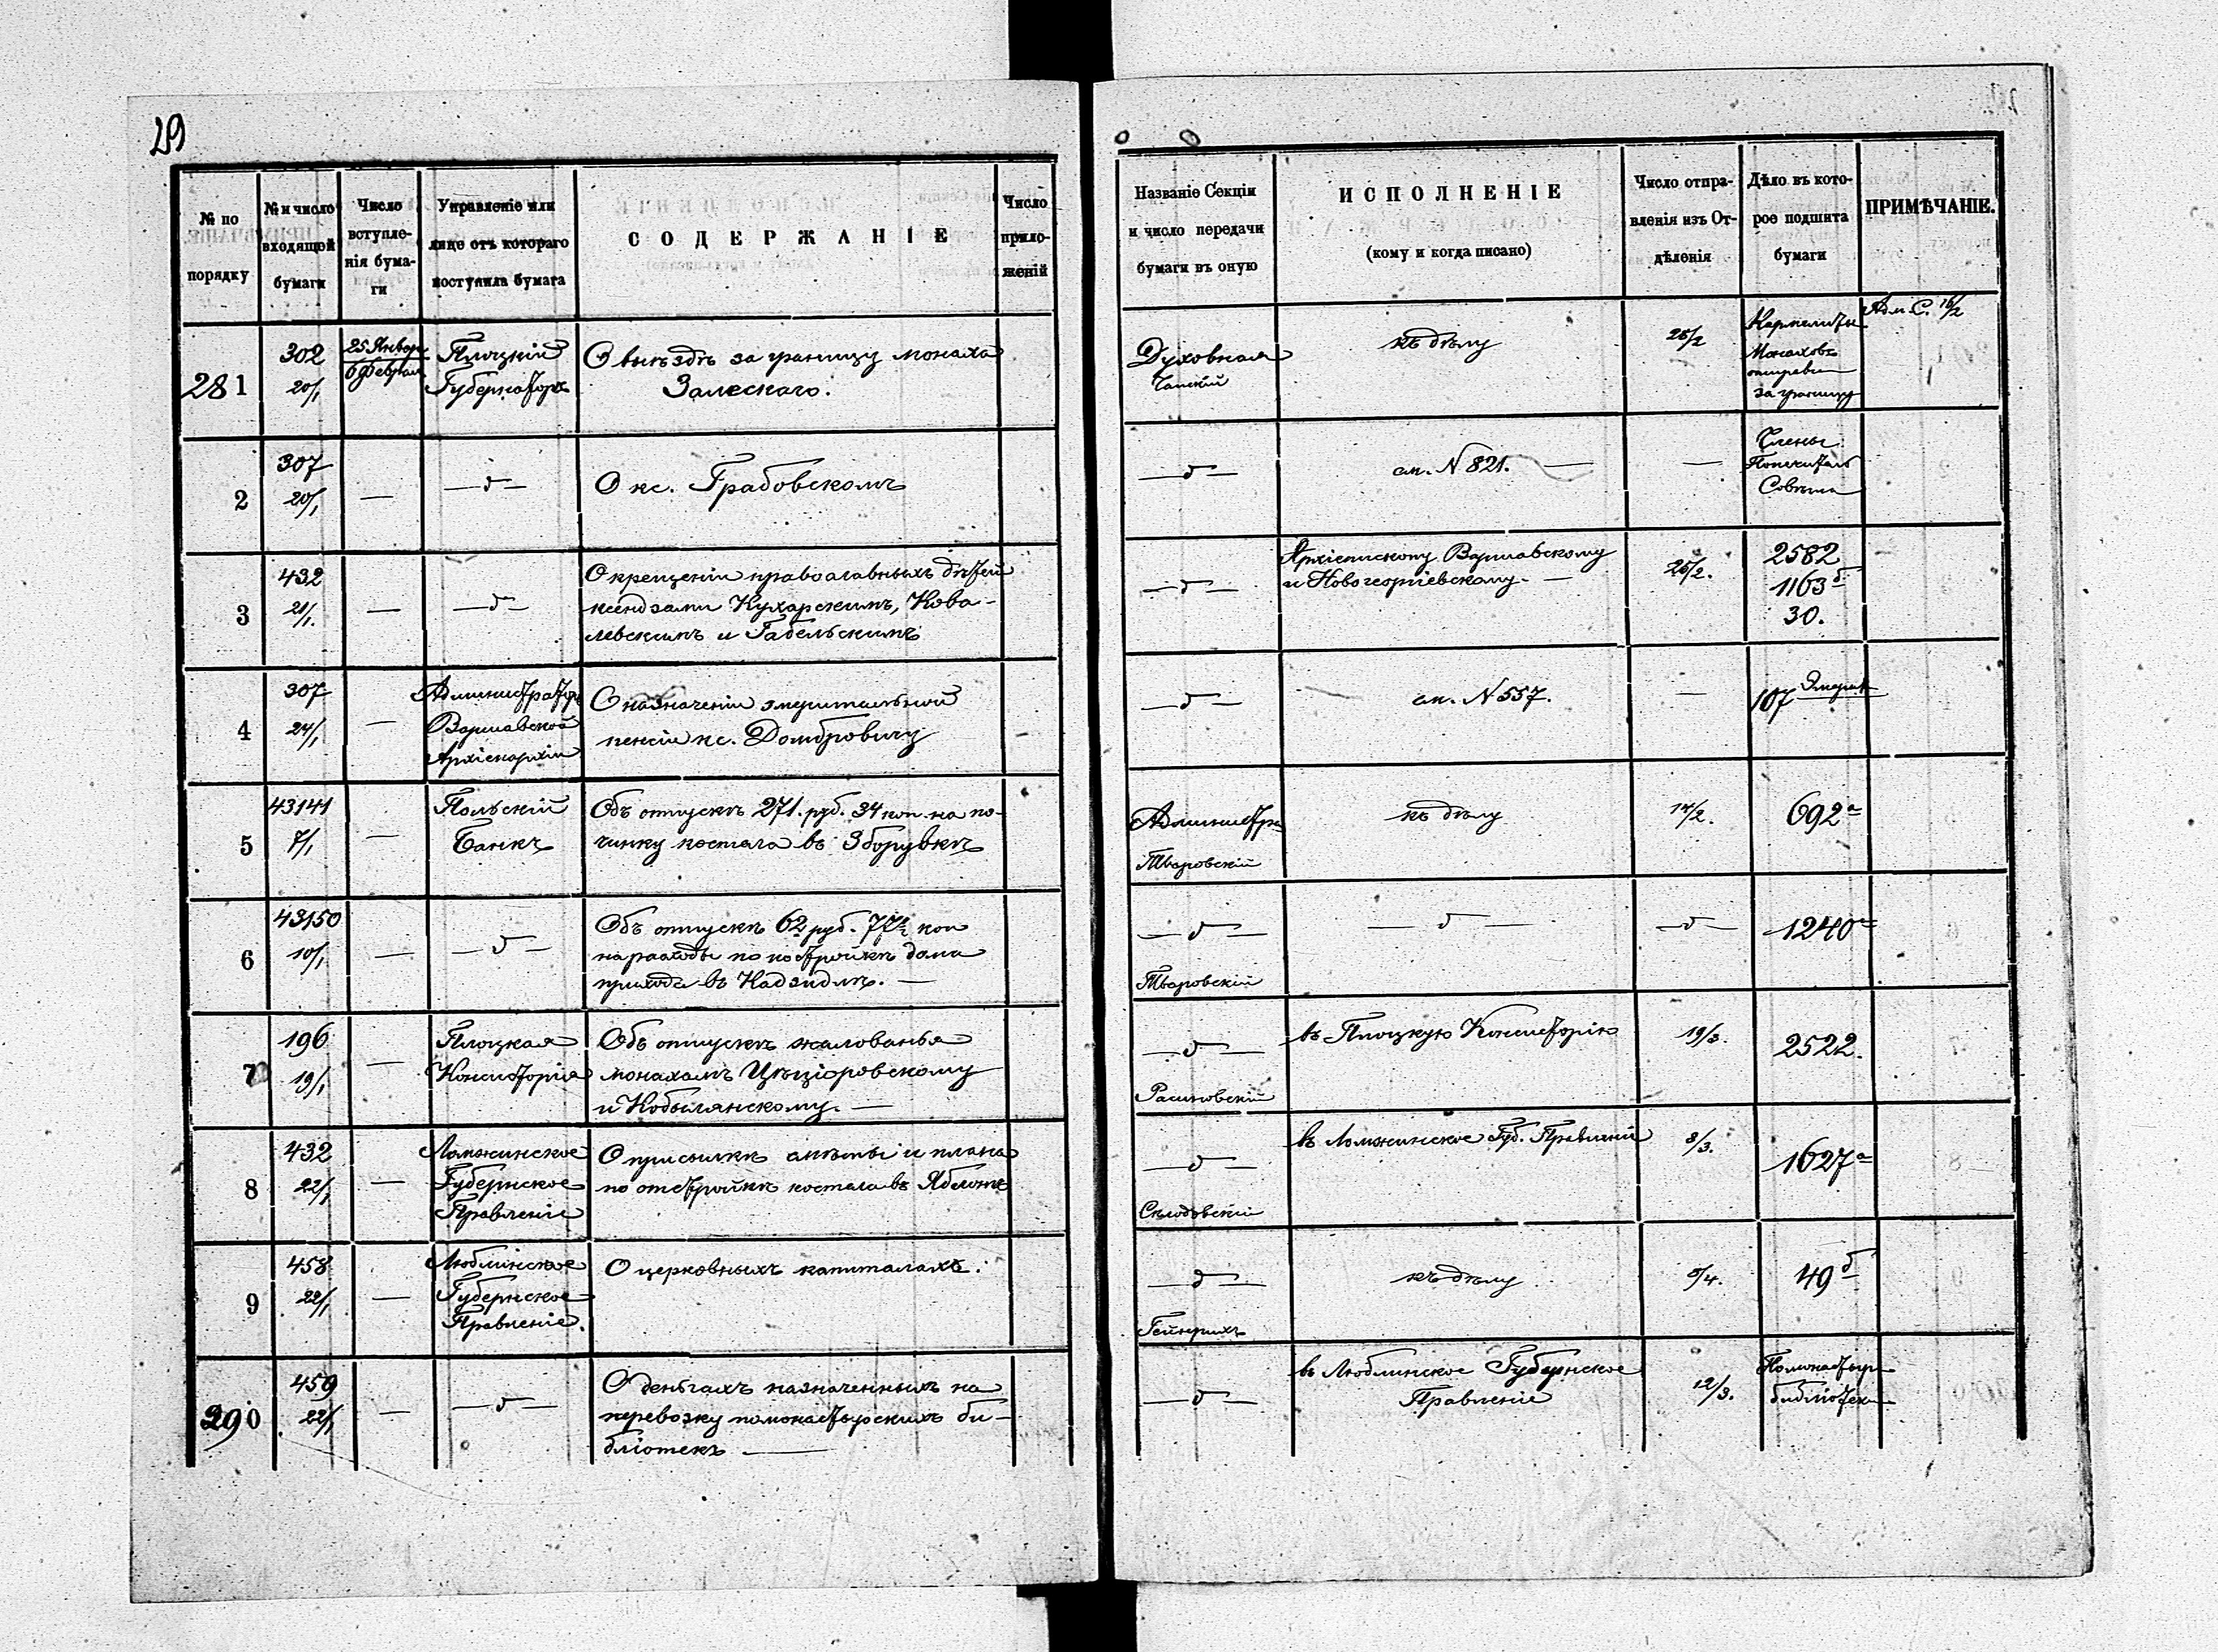 29
№ по порядку
№ и число входящей бумаги
Число вступле-нія бума-ги
Управленіе или лице отъ котораго поступила бумага
СОДЕРЖАНІЕ
Число прило-женій
Названіе Секціи и число передачи бумаги въ оную
ИСПОЛНЕНІЕ
(кому и когда писано)
Число отпра-вленія изъ От-дѣленія
Дѣло въ кото-рое подшита бумаги
ПРИМѢЧАНІЕ.
281
302
20/1
25 Январ
6 Феврал
Плоцкій
Губернаторъ
О выѣздѣ за границу монаха
Залескаго.
Духовная
къ дѣлу
26/2
Кармелиты
Монаховъ
за границу
Адм. С. 16/2
2
307
20/1
—
—д—
О кс. Грабовскомъ
—д—
см. N 821. —
—
Члены
Попечитель
Совѣта
3
432
21/1.
—
—д—
О крещеніи православныхъ дѣтей
ксендзами Кухарскимъ, Кова-
левскимъ и Габельскимъ
—д—
Архіепископу Варшавскому
и Новогеоргіевскому. —
26/2.
2582
1163 б
30.
4
307
24/1
—
Администраторъ
Варшавской
Архіепархіи
О назначеніи эмеритальной
пенсіи кс. Домбровичу
—д—
см. N 557.
—
107 Эмерит
5
43141
7/1
—
Польскій
Банкъ
Объ отпускѣ 271. руб. 34 коп. на по-
чинку костела въ Зборувкѣ
Администра
Тваровскій
къ дѣлу
14/2.
692 а
6
43150
10/1
—
—д—
Объ отпускѣ 62 руб. 77½ коп
на расходы по постройкѣ дома
прихода въ Кадзидлѣ. —
—д—
Тваровскій
—д—
—д—
1240 а
7
196
19/1
—
Плоцкая
Консисторія
Объ отпускѣ жалованья
монахамъ Цѣціоровскому
и Кобылянскому. —
—д—
въ Плоцкую Консисторію
19/3.
2522.
8
432
22/1
—
Ломжинское
Губернское
Правленіе
О присылкѣ смѣты и плана
по отстройкѣ костела въ Яблонѣ
—д—
Склодовскій
въ Ломжинское Губ. Правленіе
8/3.
1627 а
9
458
22/1
—
Люблинское
Губернское
Правленіе.
О церковныхъ капиталахъ.
—д—
Гейнрихъ
къ дѣлу
5/4.
49 б
290
459
22/1
—
—д—
О деньгахъ назначенныхъ на
перевозку помонастырскихъ би-
бліотекъ —
—д—
въ Люблинское Губернское
Правленіе
12/3.
Помонастыр
библіотек